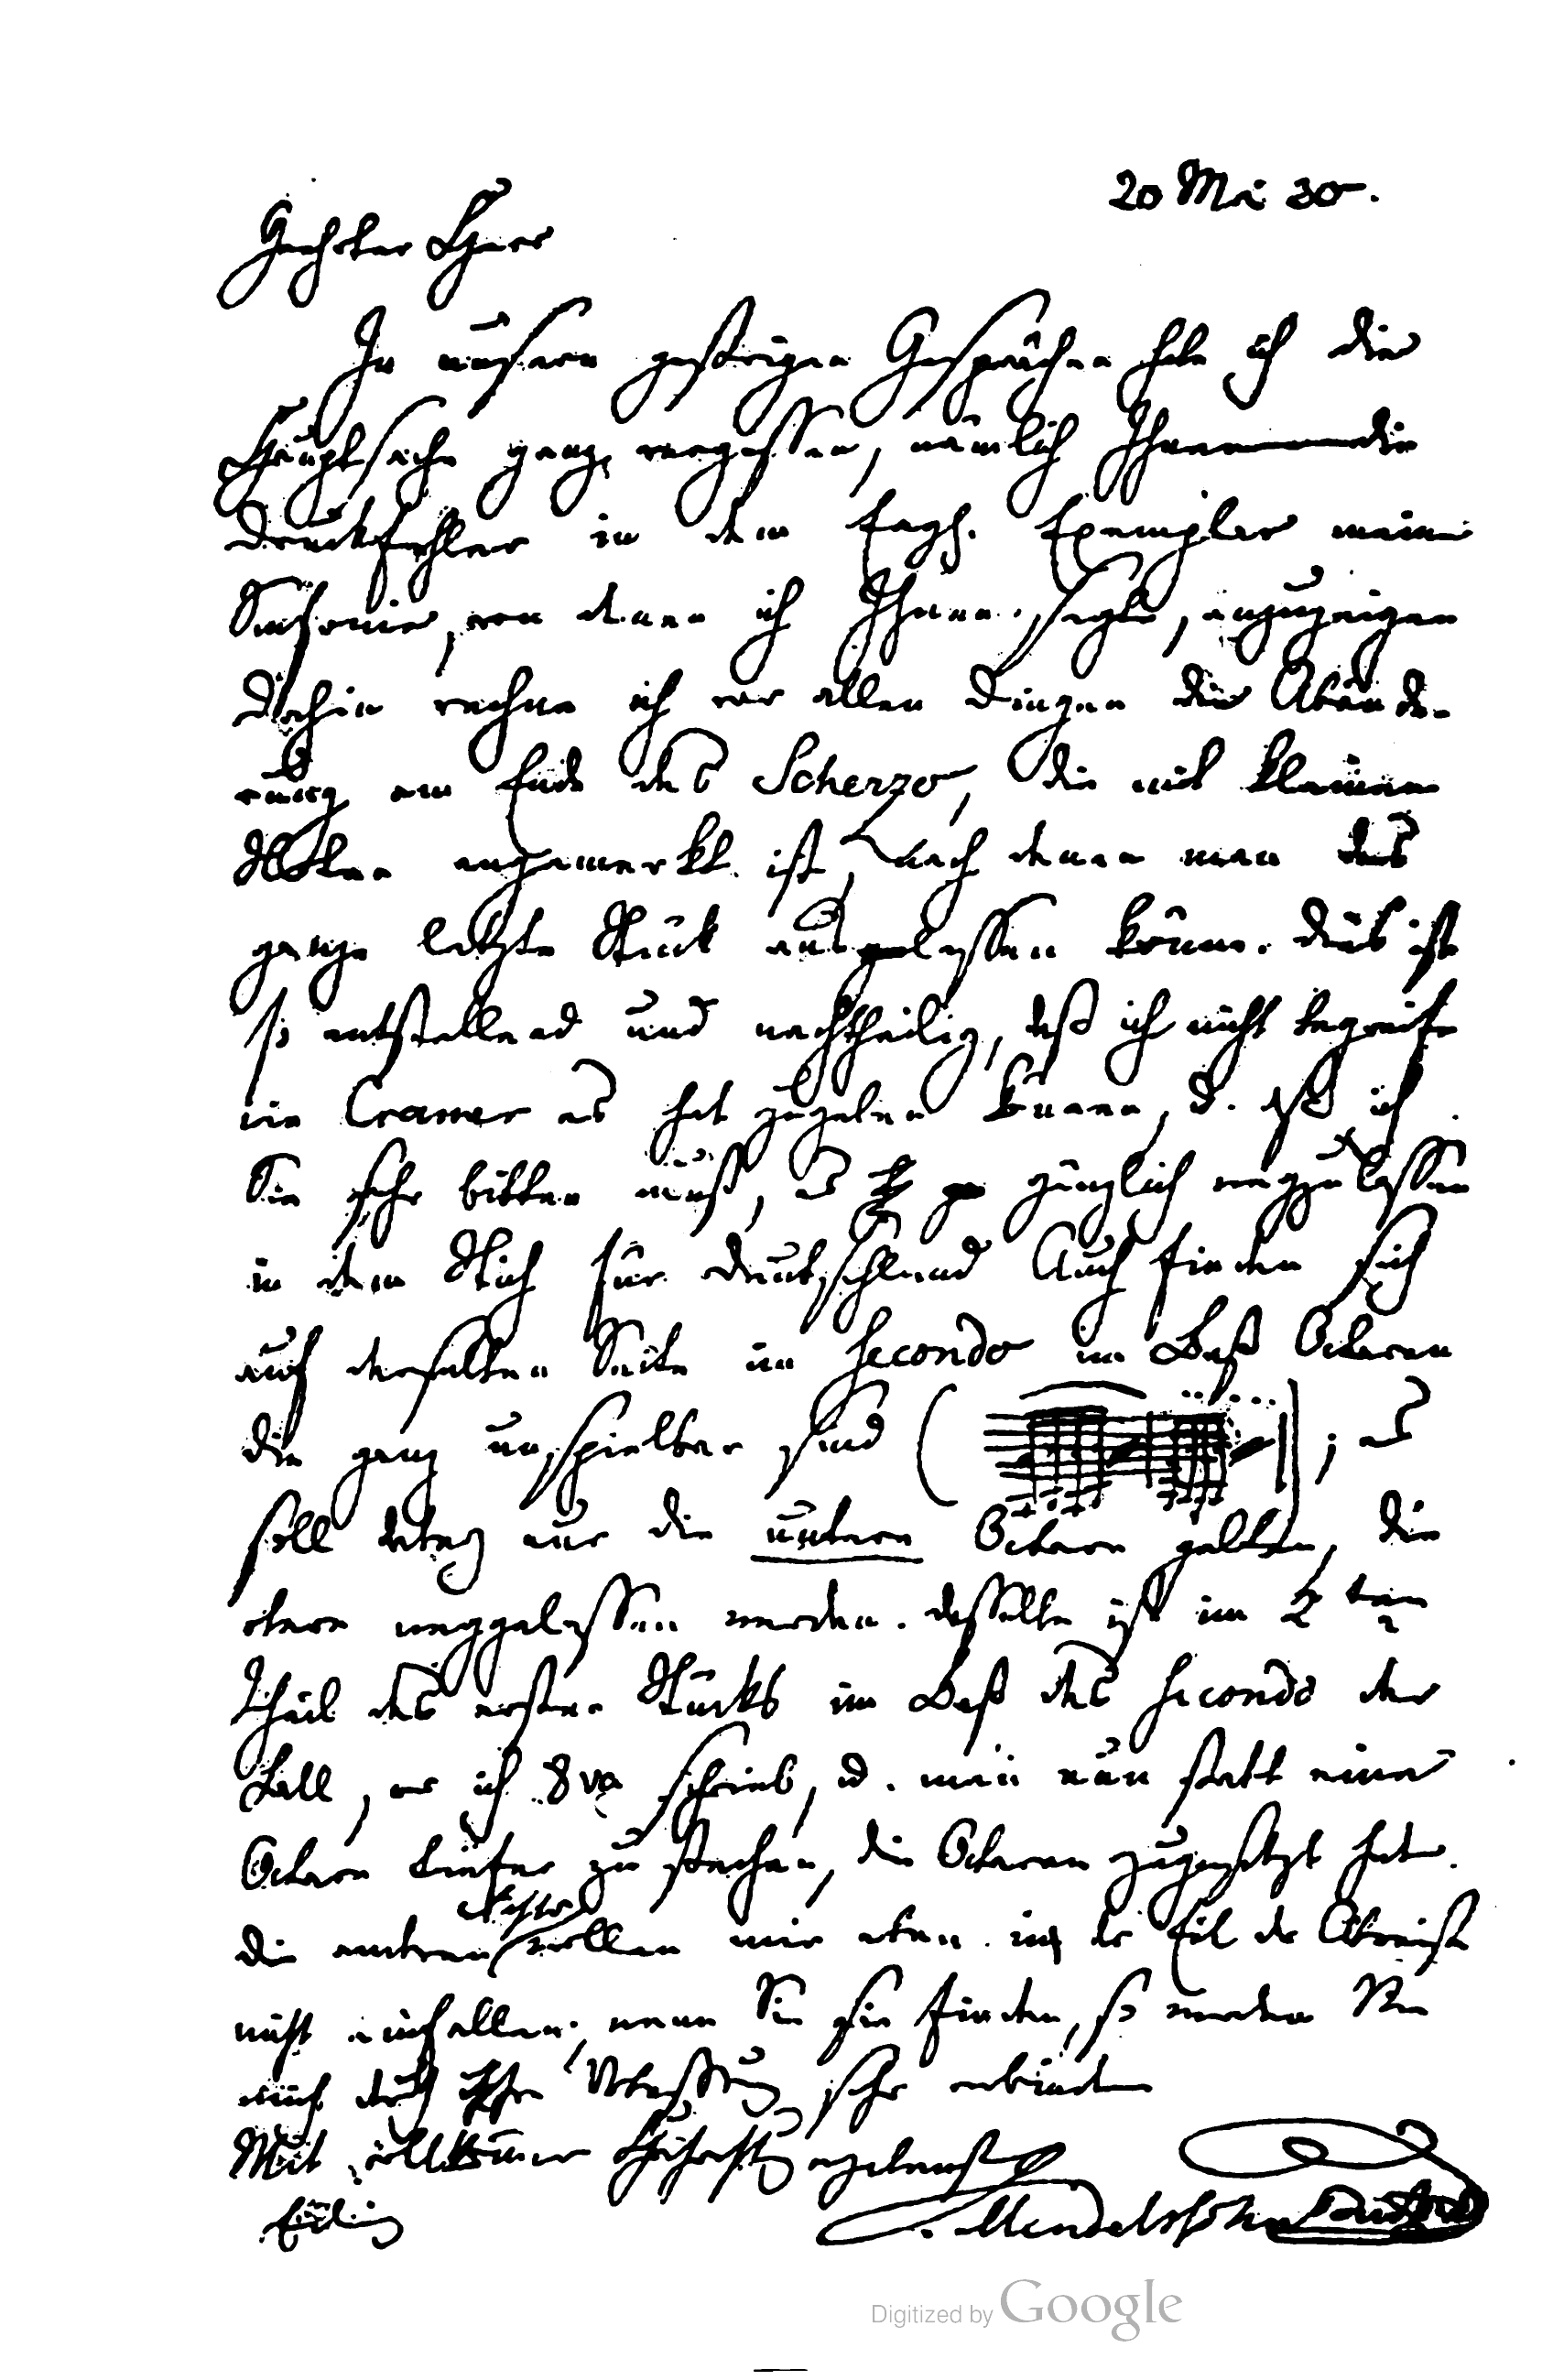 20 Mai 30.
Geehrter Herr
In unsern gestrigen Gesprächen habe ich die
Hauptsache ganz vergessen, nämlich Ihnen die
Druckfehler in dem Engl. Exemplar meiner
Sinfonie, von denen ich Ihnen sagte, anzuzeigen
Dahin rechne ich vor allen Dingen die Abände-
rung am Ende des Scherzo, die mit kleinen
Noten angemerkt ist, nach denen man das
ganze letzte Stück auslassen könne. Dies ist
so entstellend und nachtheilig, daß ich nicht begreife
wie Cramer es hat zugeben können, u. daß ich
Sie sehr bitten muß, es gänzlich wegzulassen
in dem Stich für Deutschland Auch finden sich
auf derselben Seite im Secondo im Baß Octaven
die ganz unspielbar sind ( ); es
soll nur die untere Octave gelten, die
obere weggelassen werden. Dasselbe ist im 2ten
Theil des ersten Stücks im Baß des Secondo der
Fall, wo ich 8va schrieb, u. man nun statt eine
Octave tiefer zu stechen, die Octaven zugesetzt hat.
Die anderen wollen mir eben in der Eil der Abreise
nicht einfallen; wenn Sie sie finden, so werden Sie
mich durch ihre Verbesserung sehr verbinden
Mit vollkommner Hochachtung ergebenst
Eilig
F. Mendelssohn Bartholdy
Digitized by Google